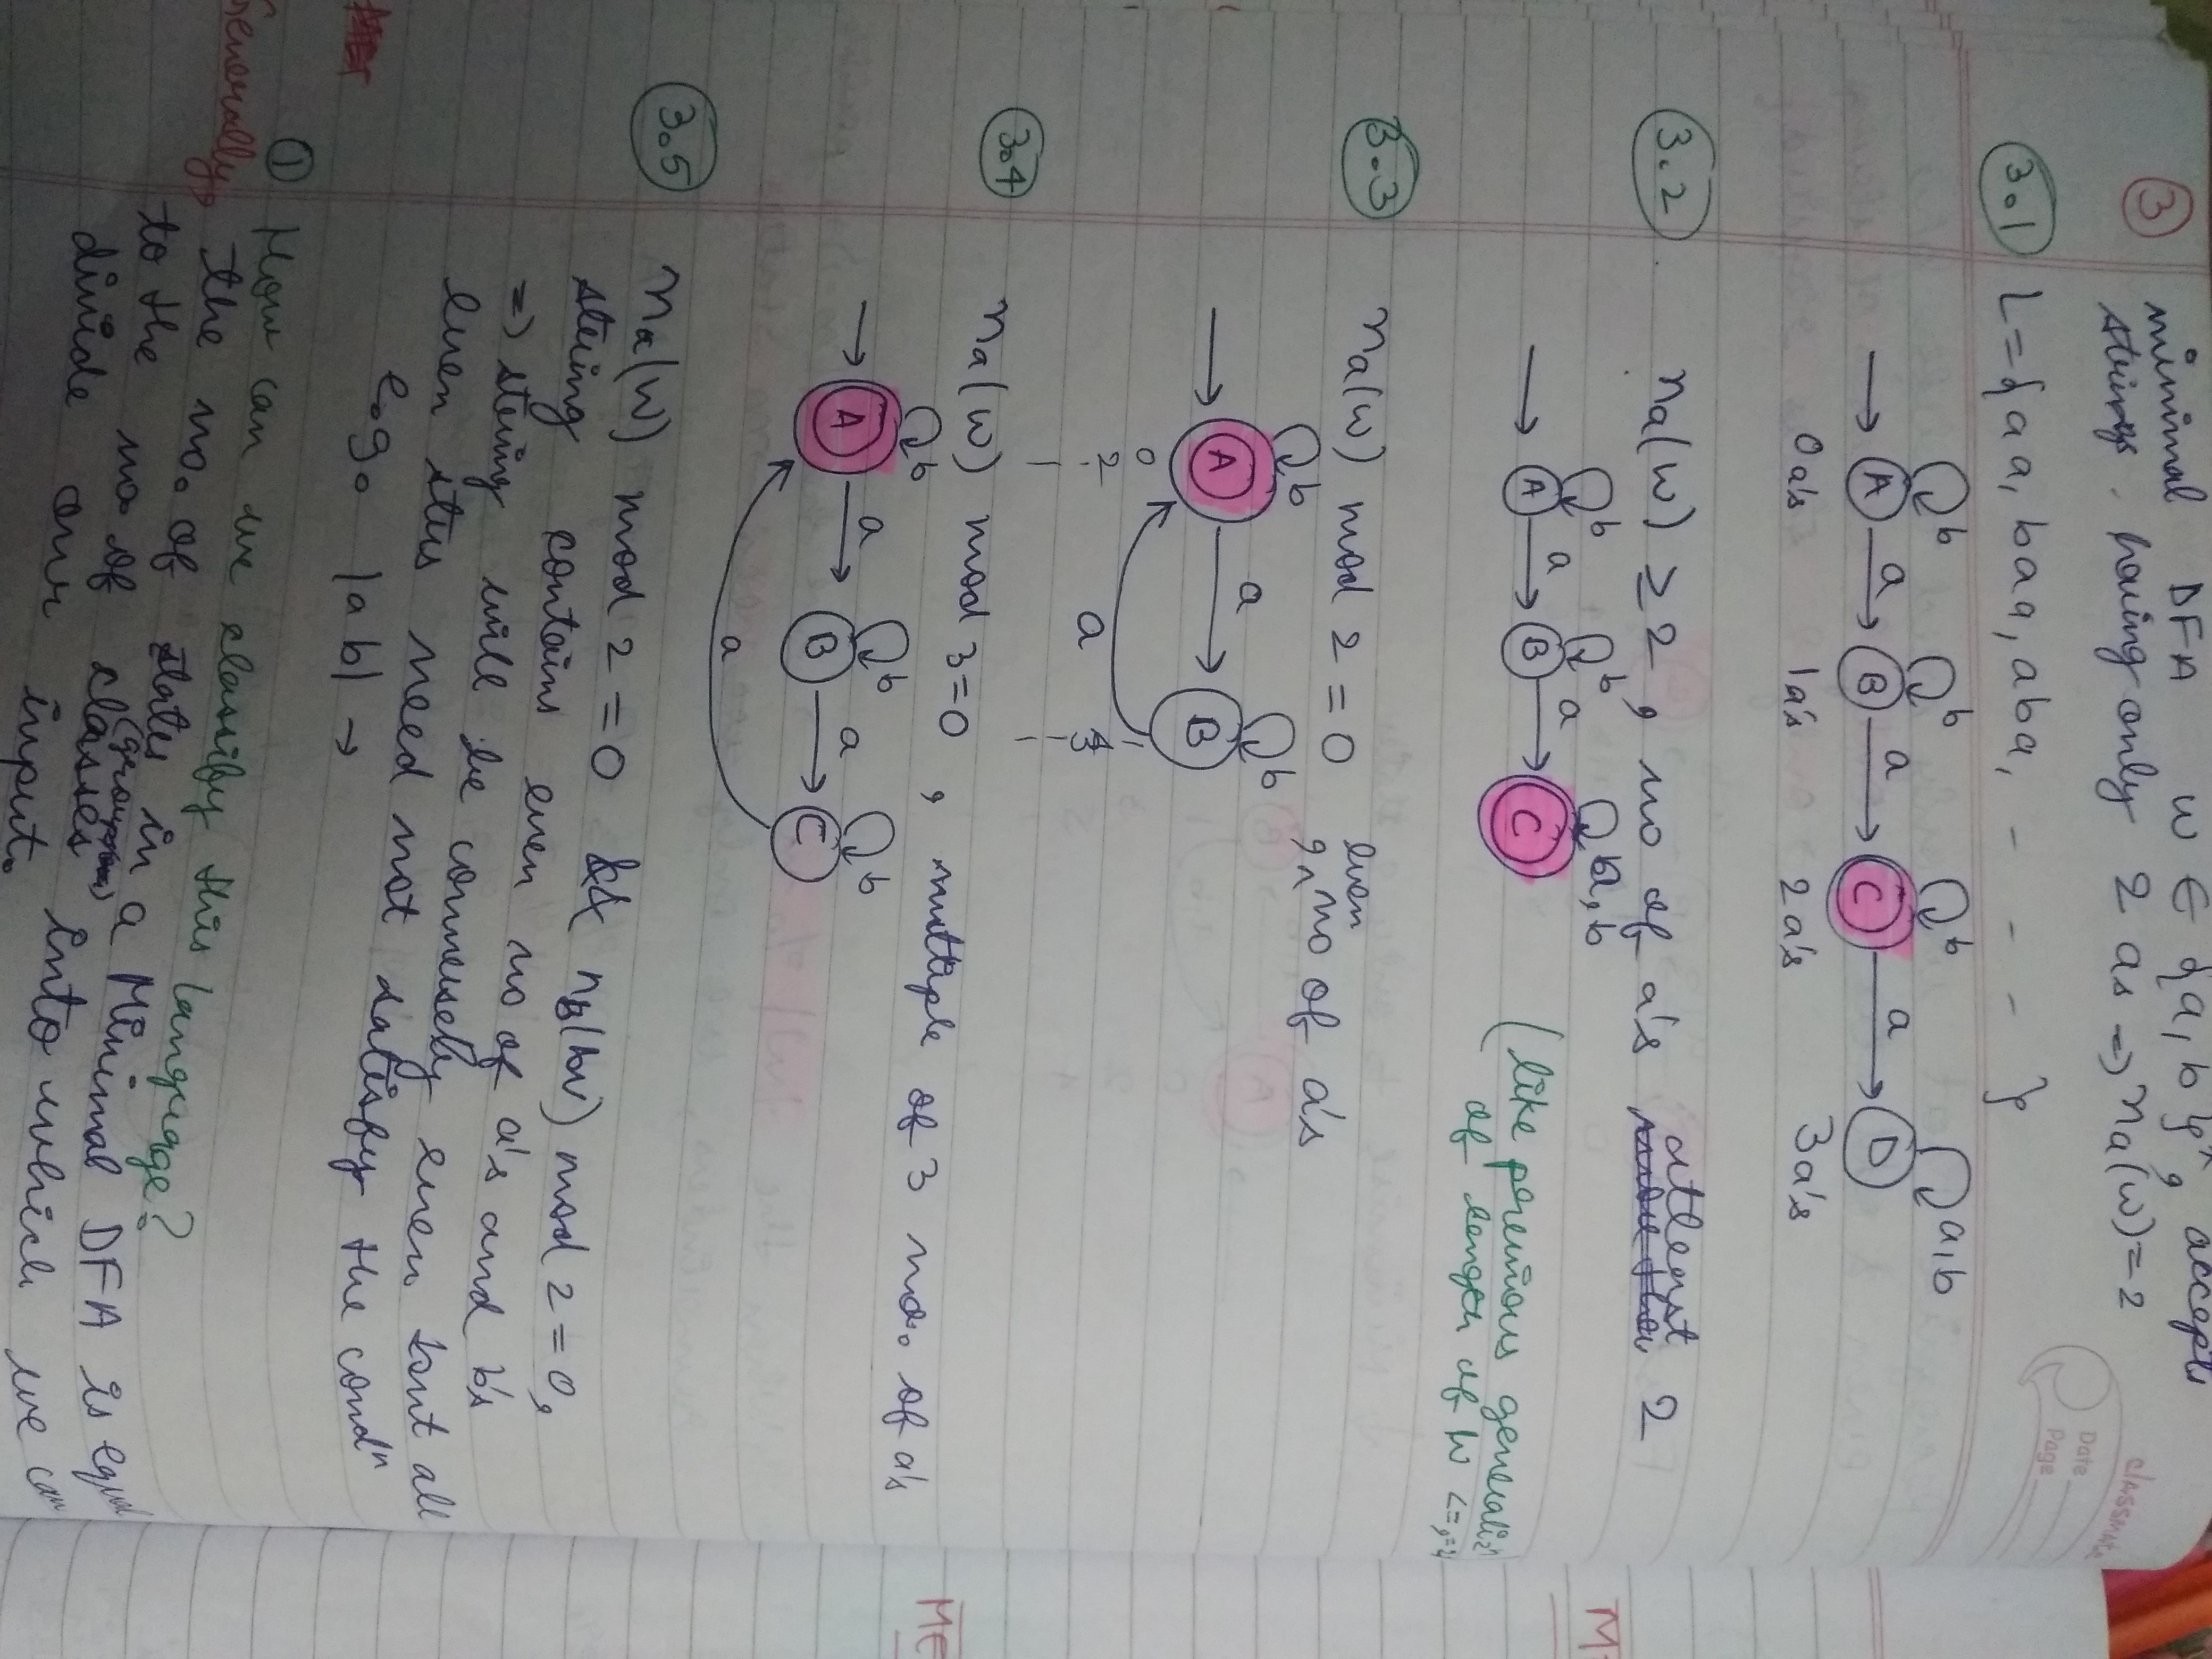 classmate
Date
Page
③ minimal DFA w ∈ {a,b}*, accepts
strings having only 2 as => na(w)=2
3.1 L={aa, baa, aba, - - - }
b b b a,b
→ A a B a C a D
0a's 1a's 2a's 3a's
3.2 na(w) ≥ 2, no of a's atleast 2
b b a,b
→ A a B a C
(like previous
of length of w
3.3 na(w) mod 2 = 0, even no of a's
b b
→ A a B
a
0 1
2 3
3.4 na(w) mod 3=0, multiple of 3 no. of a's
b b b
→ A a B a C
a
3.5 na(w) mod 2=0 && nb(w) mod 2=0,
string contains even no of a's and b's
=> string will be even but all
even strs need not satisfy the condn
e.g. |ab| →
① How can we classify this language?
Generally, the no. of states in a Minimal DFA is equal
to the no of classes into which we can
divide our input.
ME